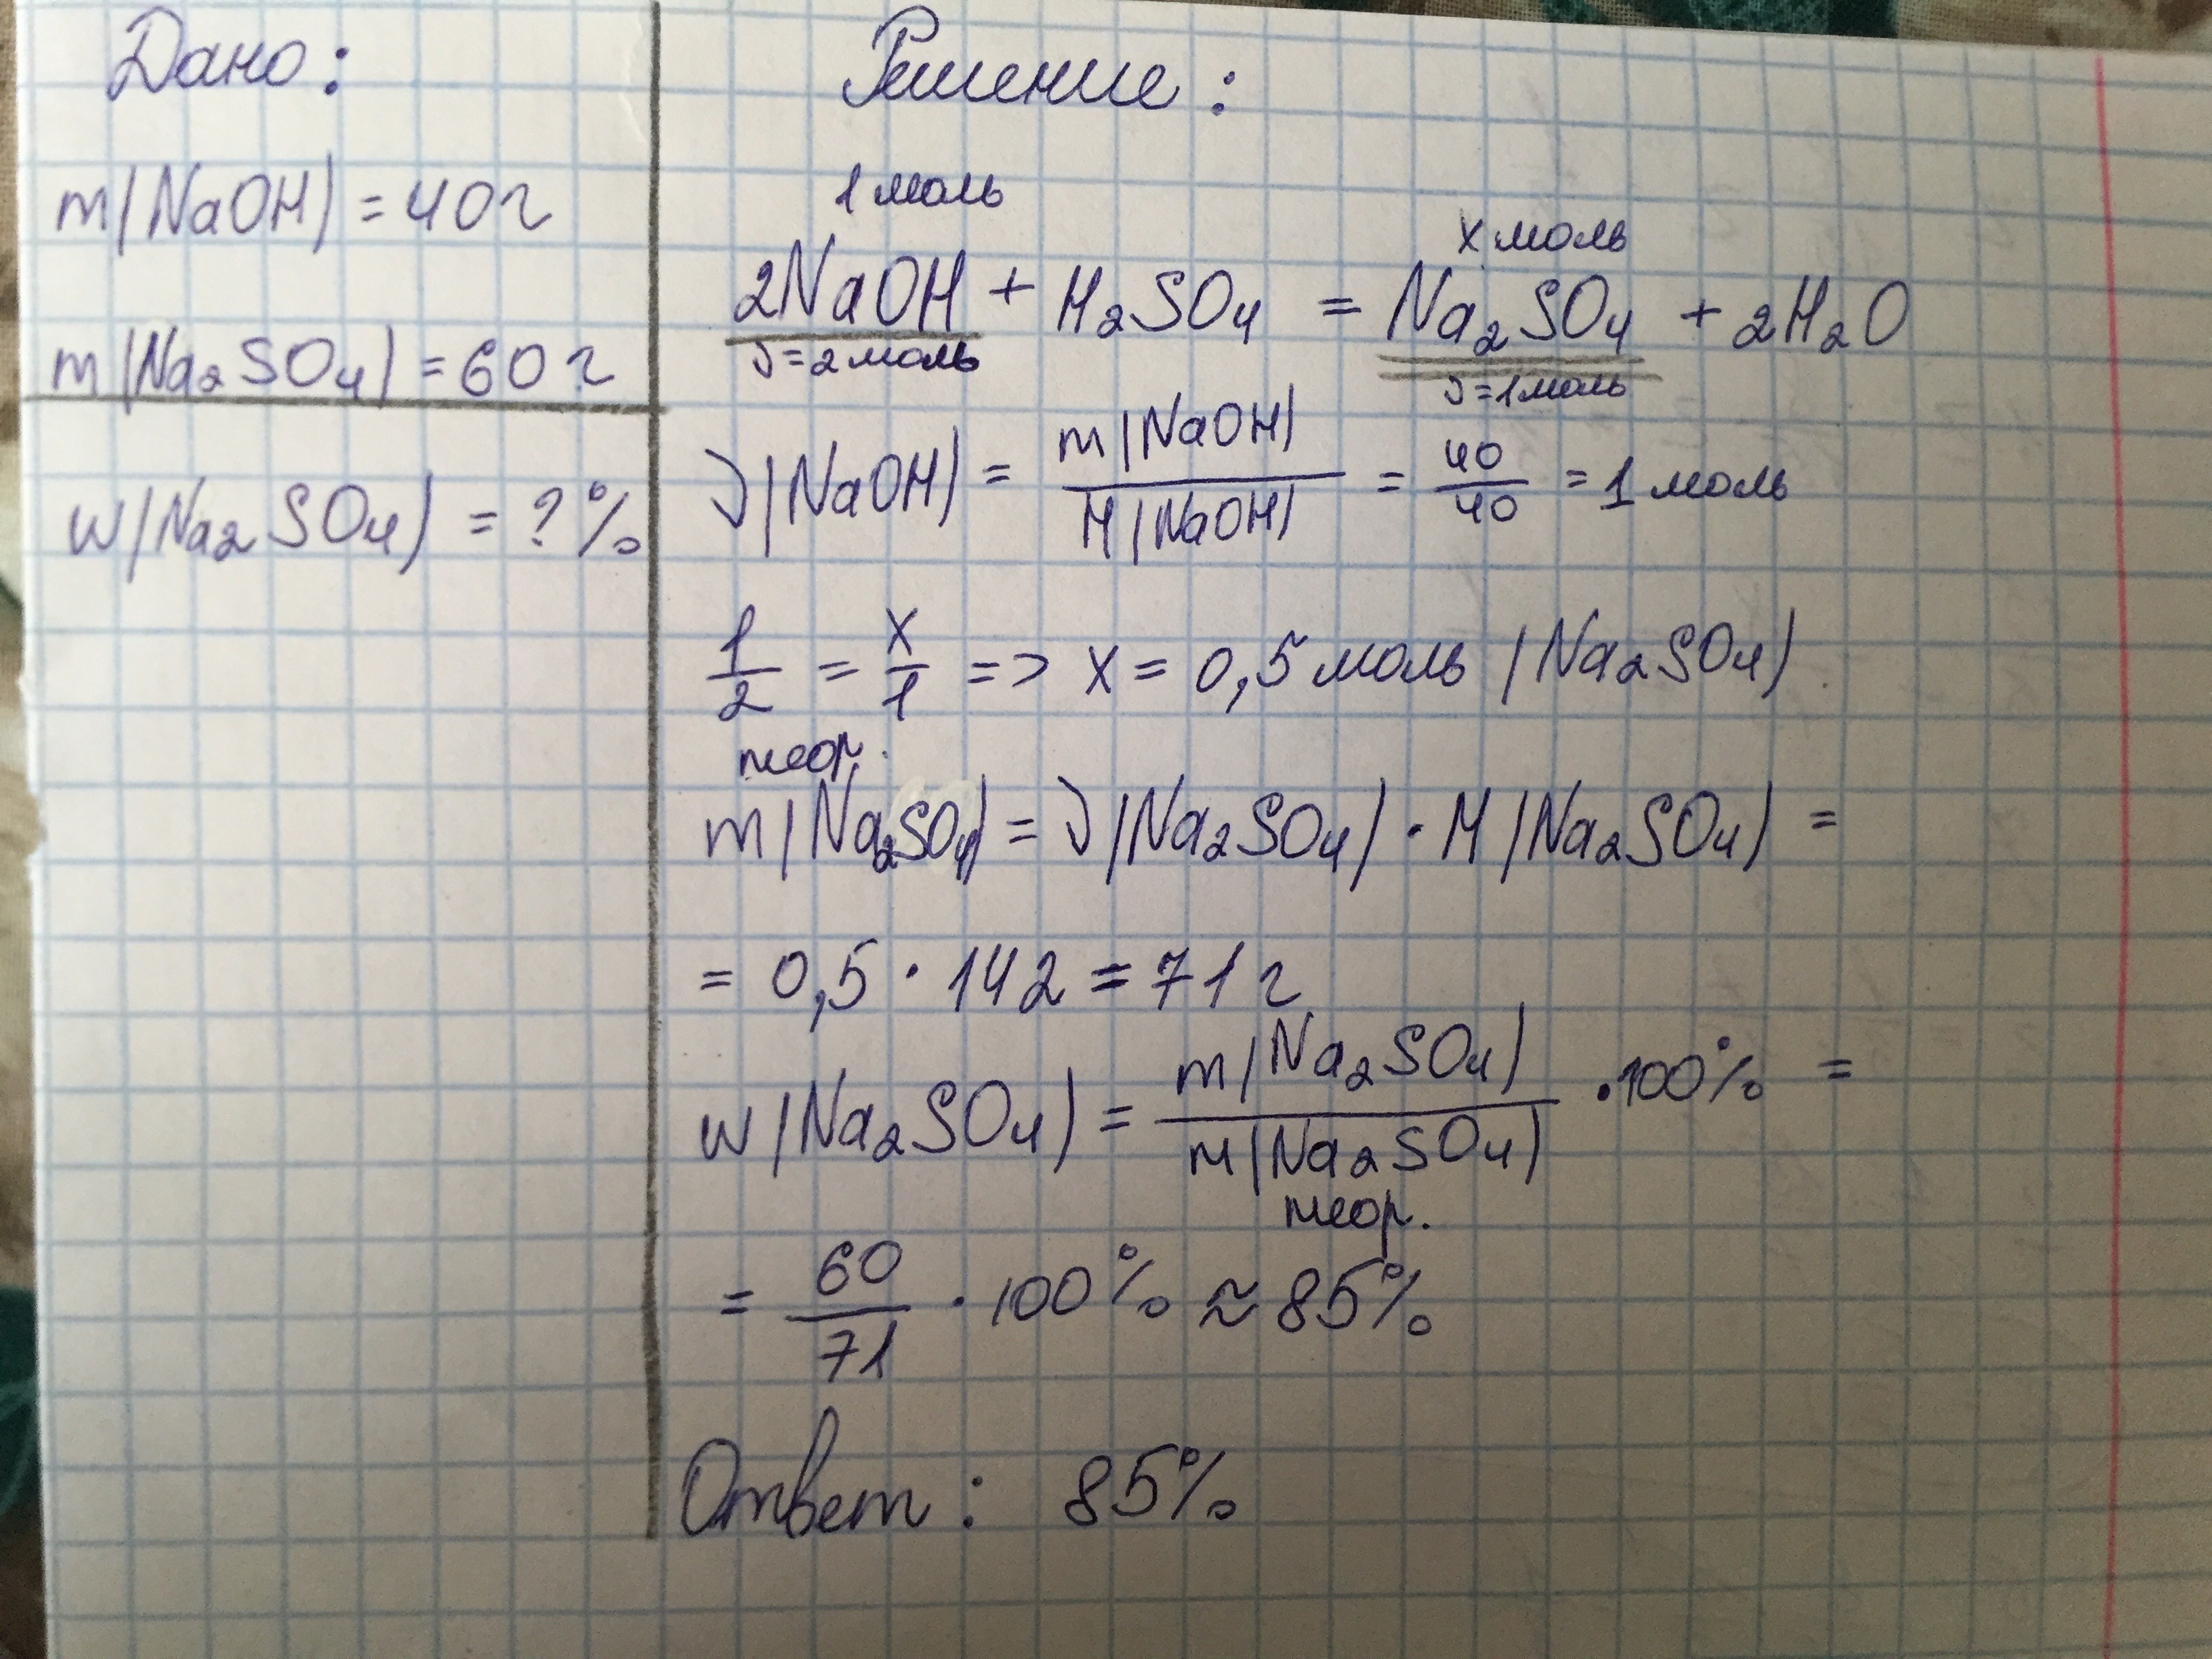 Дано:
m(NaOH) = 40г
m(Na₂SO₄) = 60г
w(Na₂SO₄) = ?%
Решение:
1 моль
x моль
2NaOH + H₂SO₄ = Na₂SO₄ + 2H₂O
ν=2моль
ν=1моль
ν(NaOH) = m(NaOH)/M(NaOH) = 40/40 = 1 моль
1/2 = x/1 => x = 0,5 моль (Na₂SO₄)
теор.
m(Na₂SO₄) = ν(Na₂SO₄) · M(Na₂SO₄) =
= 0,5 · 142 = 71 г
w(Na₂SO₄) = m(Na₂SO₄)/m(Na₂SO₄) · 100% =
теор.
= 60/71 · 100% ≈ 85%
Ответ: 85%